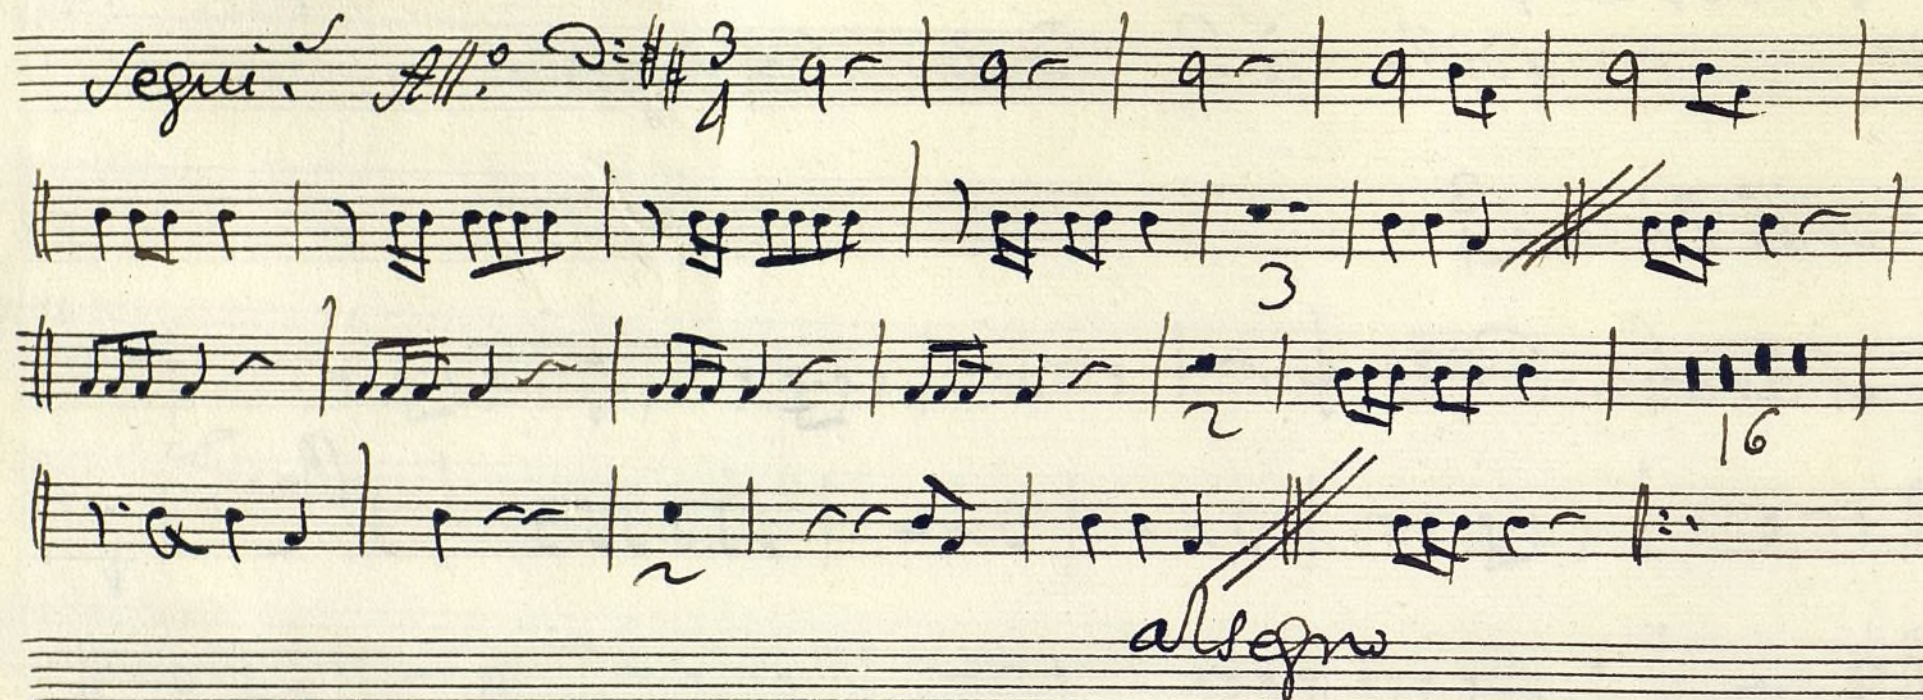 Segui. All.º 3 4
3
2 16
2
al segno